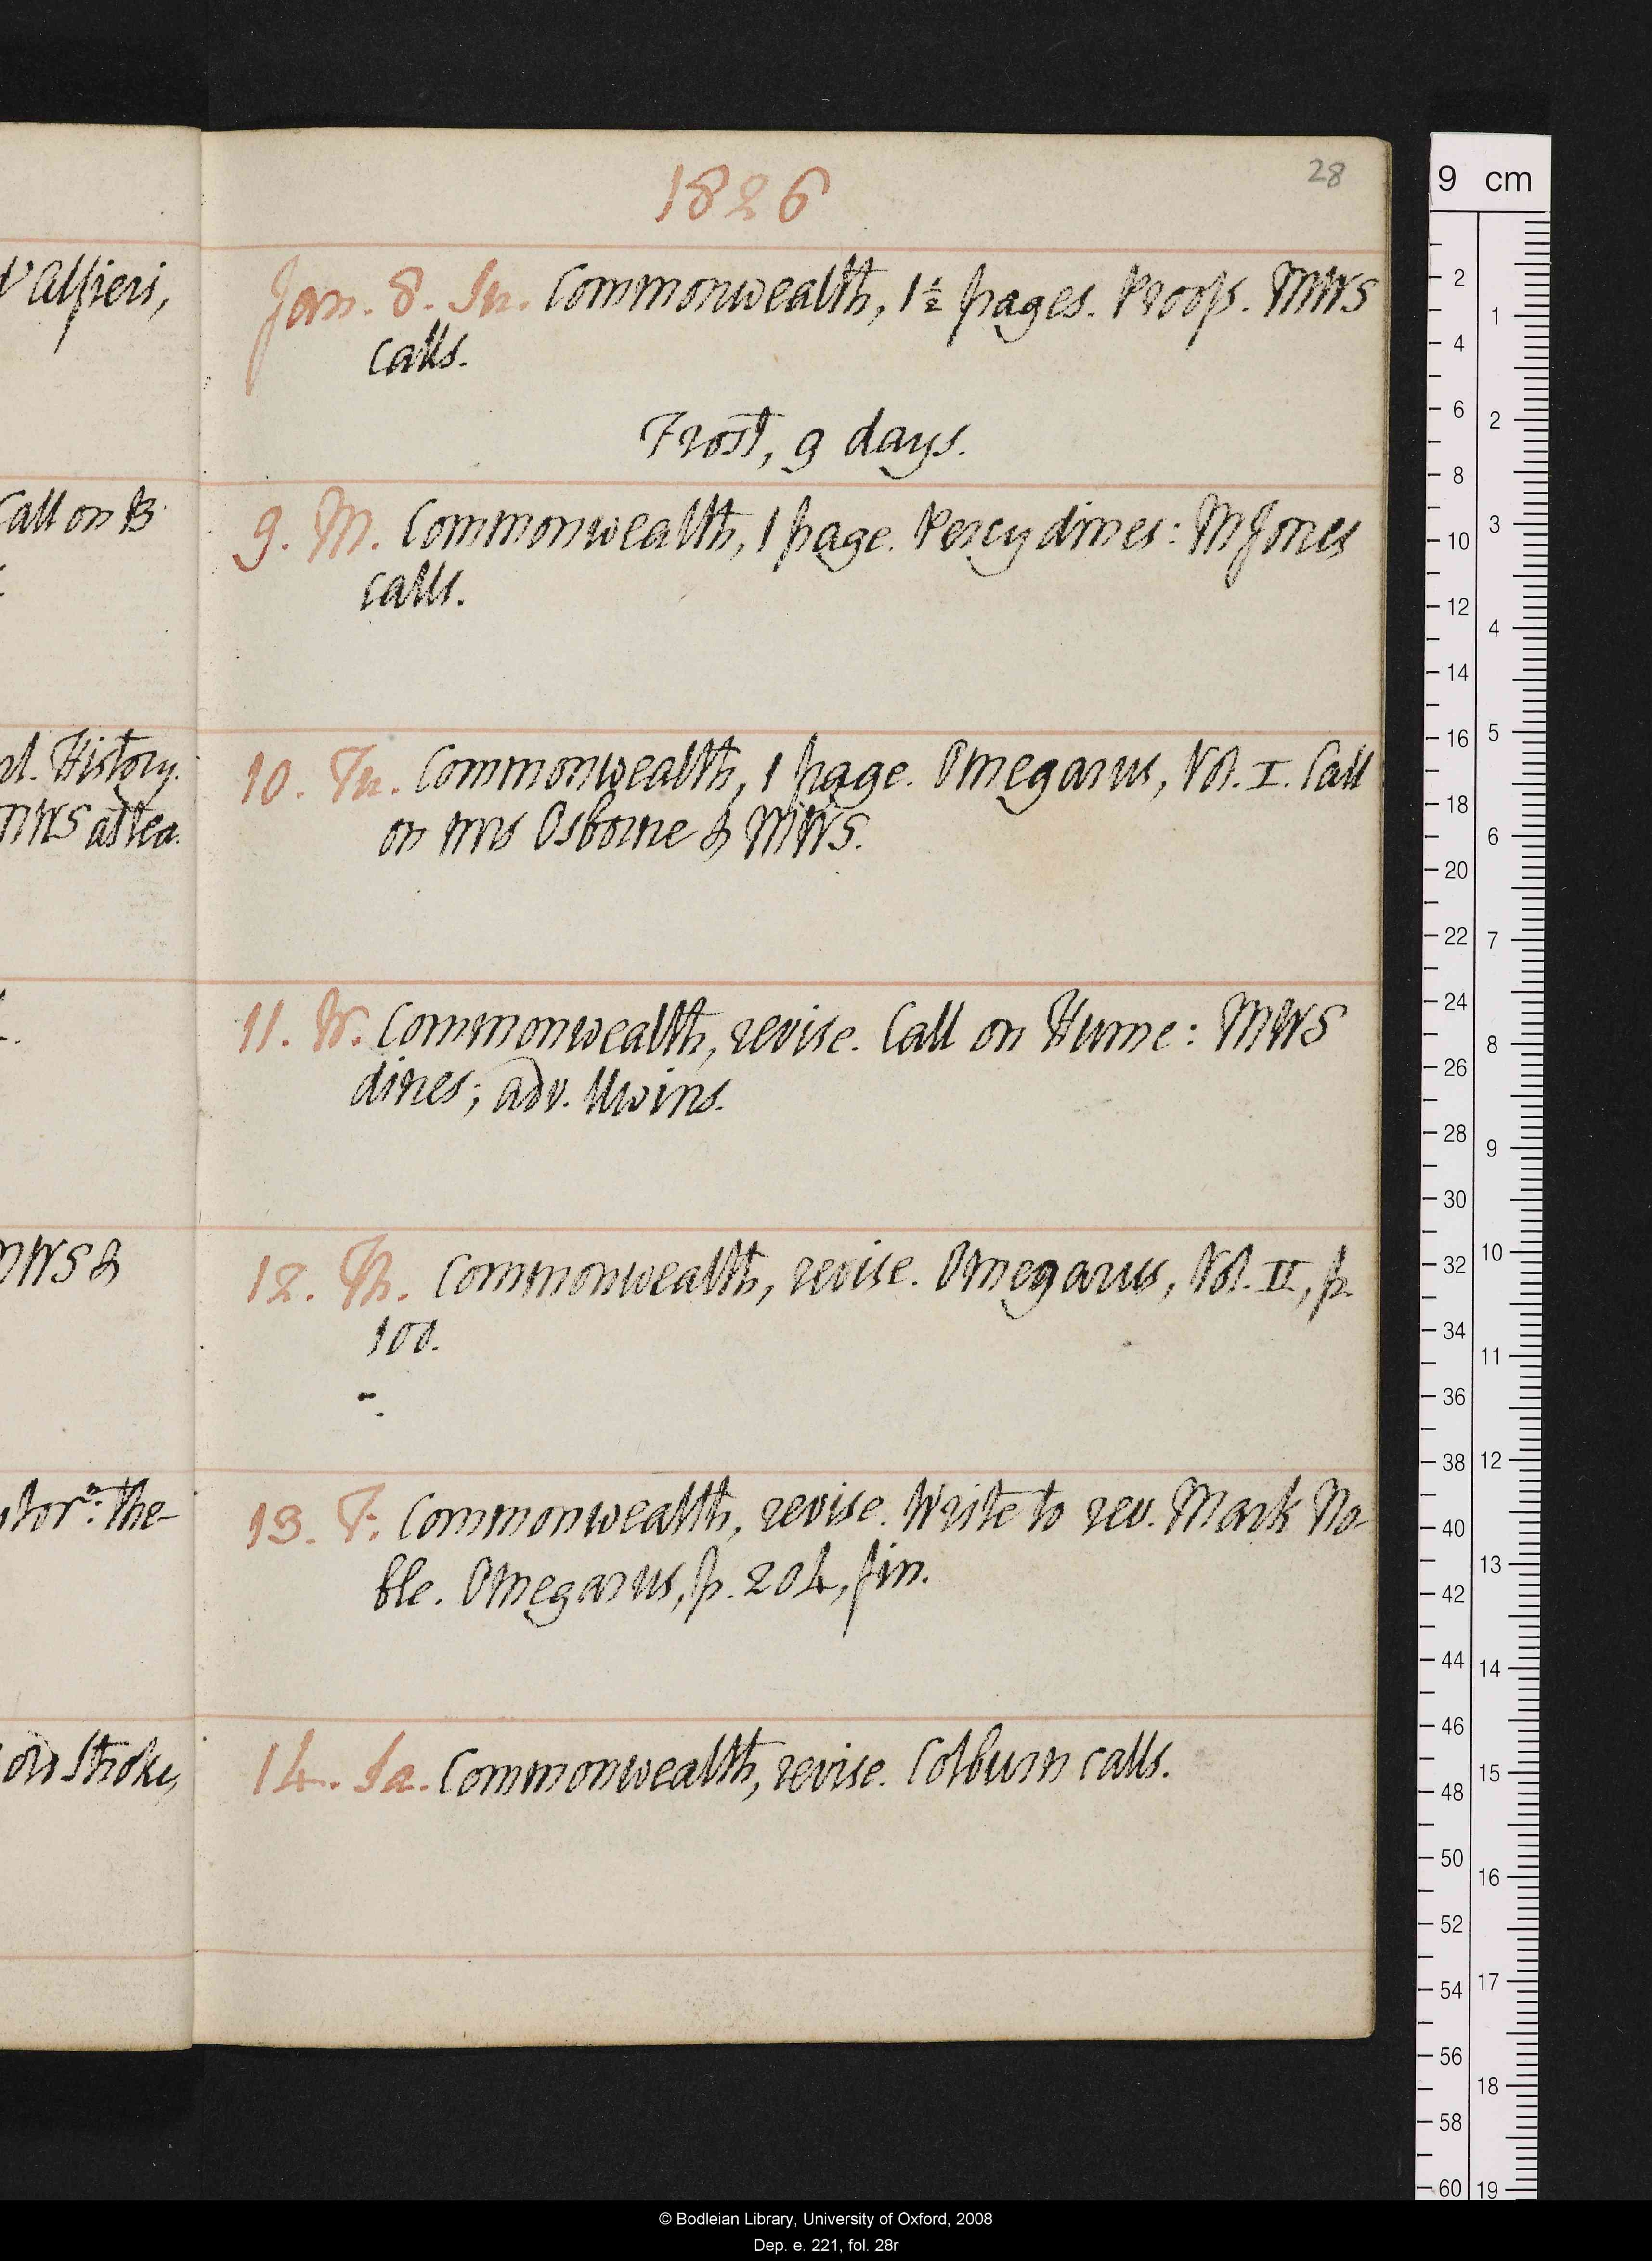 1826
28
Jan. 8. Su. Commonwealth, 1½ pages. Proofs. MWS
calls.
Frost, 9 days.
9. M. Commonwealth, 1 page. Percy dines: M Jones
calls.
10. Tu. Commonwealth, 1 page. Omegarus, Vol. I. Call
on Mrs Osborne & MWS.
11. W. Commonwealth, revise. Call on Hume: MWS
dines; adv. Uwins.
12. Th. Commonwealth, revise. Omegarus, Vol. II, p.
100.
13. F. Commonwealth, revise. Write to rev. Mark No-
ble. Omegarus, p. 204, fin.
14. Sa. Commonwealth, revise. Colburn calls.
Alfieri,
Call on B
History.
MWS at tea.
MWS &
The-
on Stroke,
9 cm
2
4
6
8
10
12
14
16
18
20
22
24
26
28
30
32
34
36
38
40
42
44
46
48
50
52
54
56
58
60
1
2
3
4
5
6
7
8
9
10
11
12
13
14
15
16
17
18
19
© Bodleian Library, University of Oxford, 2008
Dep. e. 221, fol. 28r